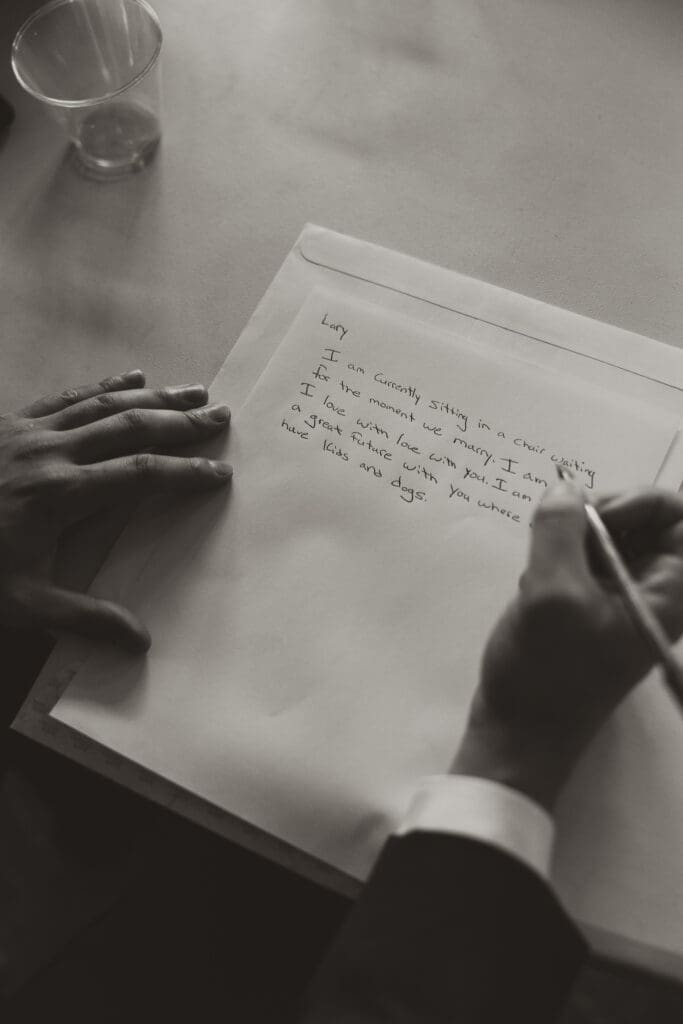 Lary
I am currently sitting in a chair waiting
for the moment we marry. I am
I love with love with you. I am
a great future with you where
have kids and dogs.